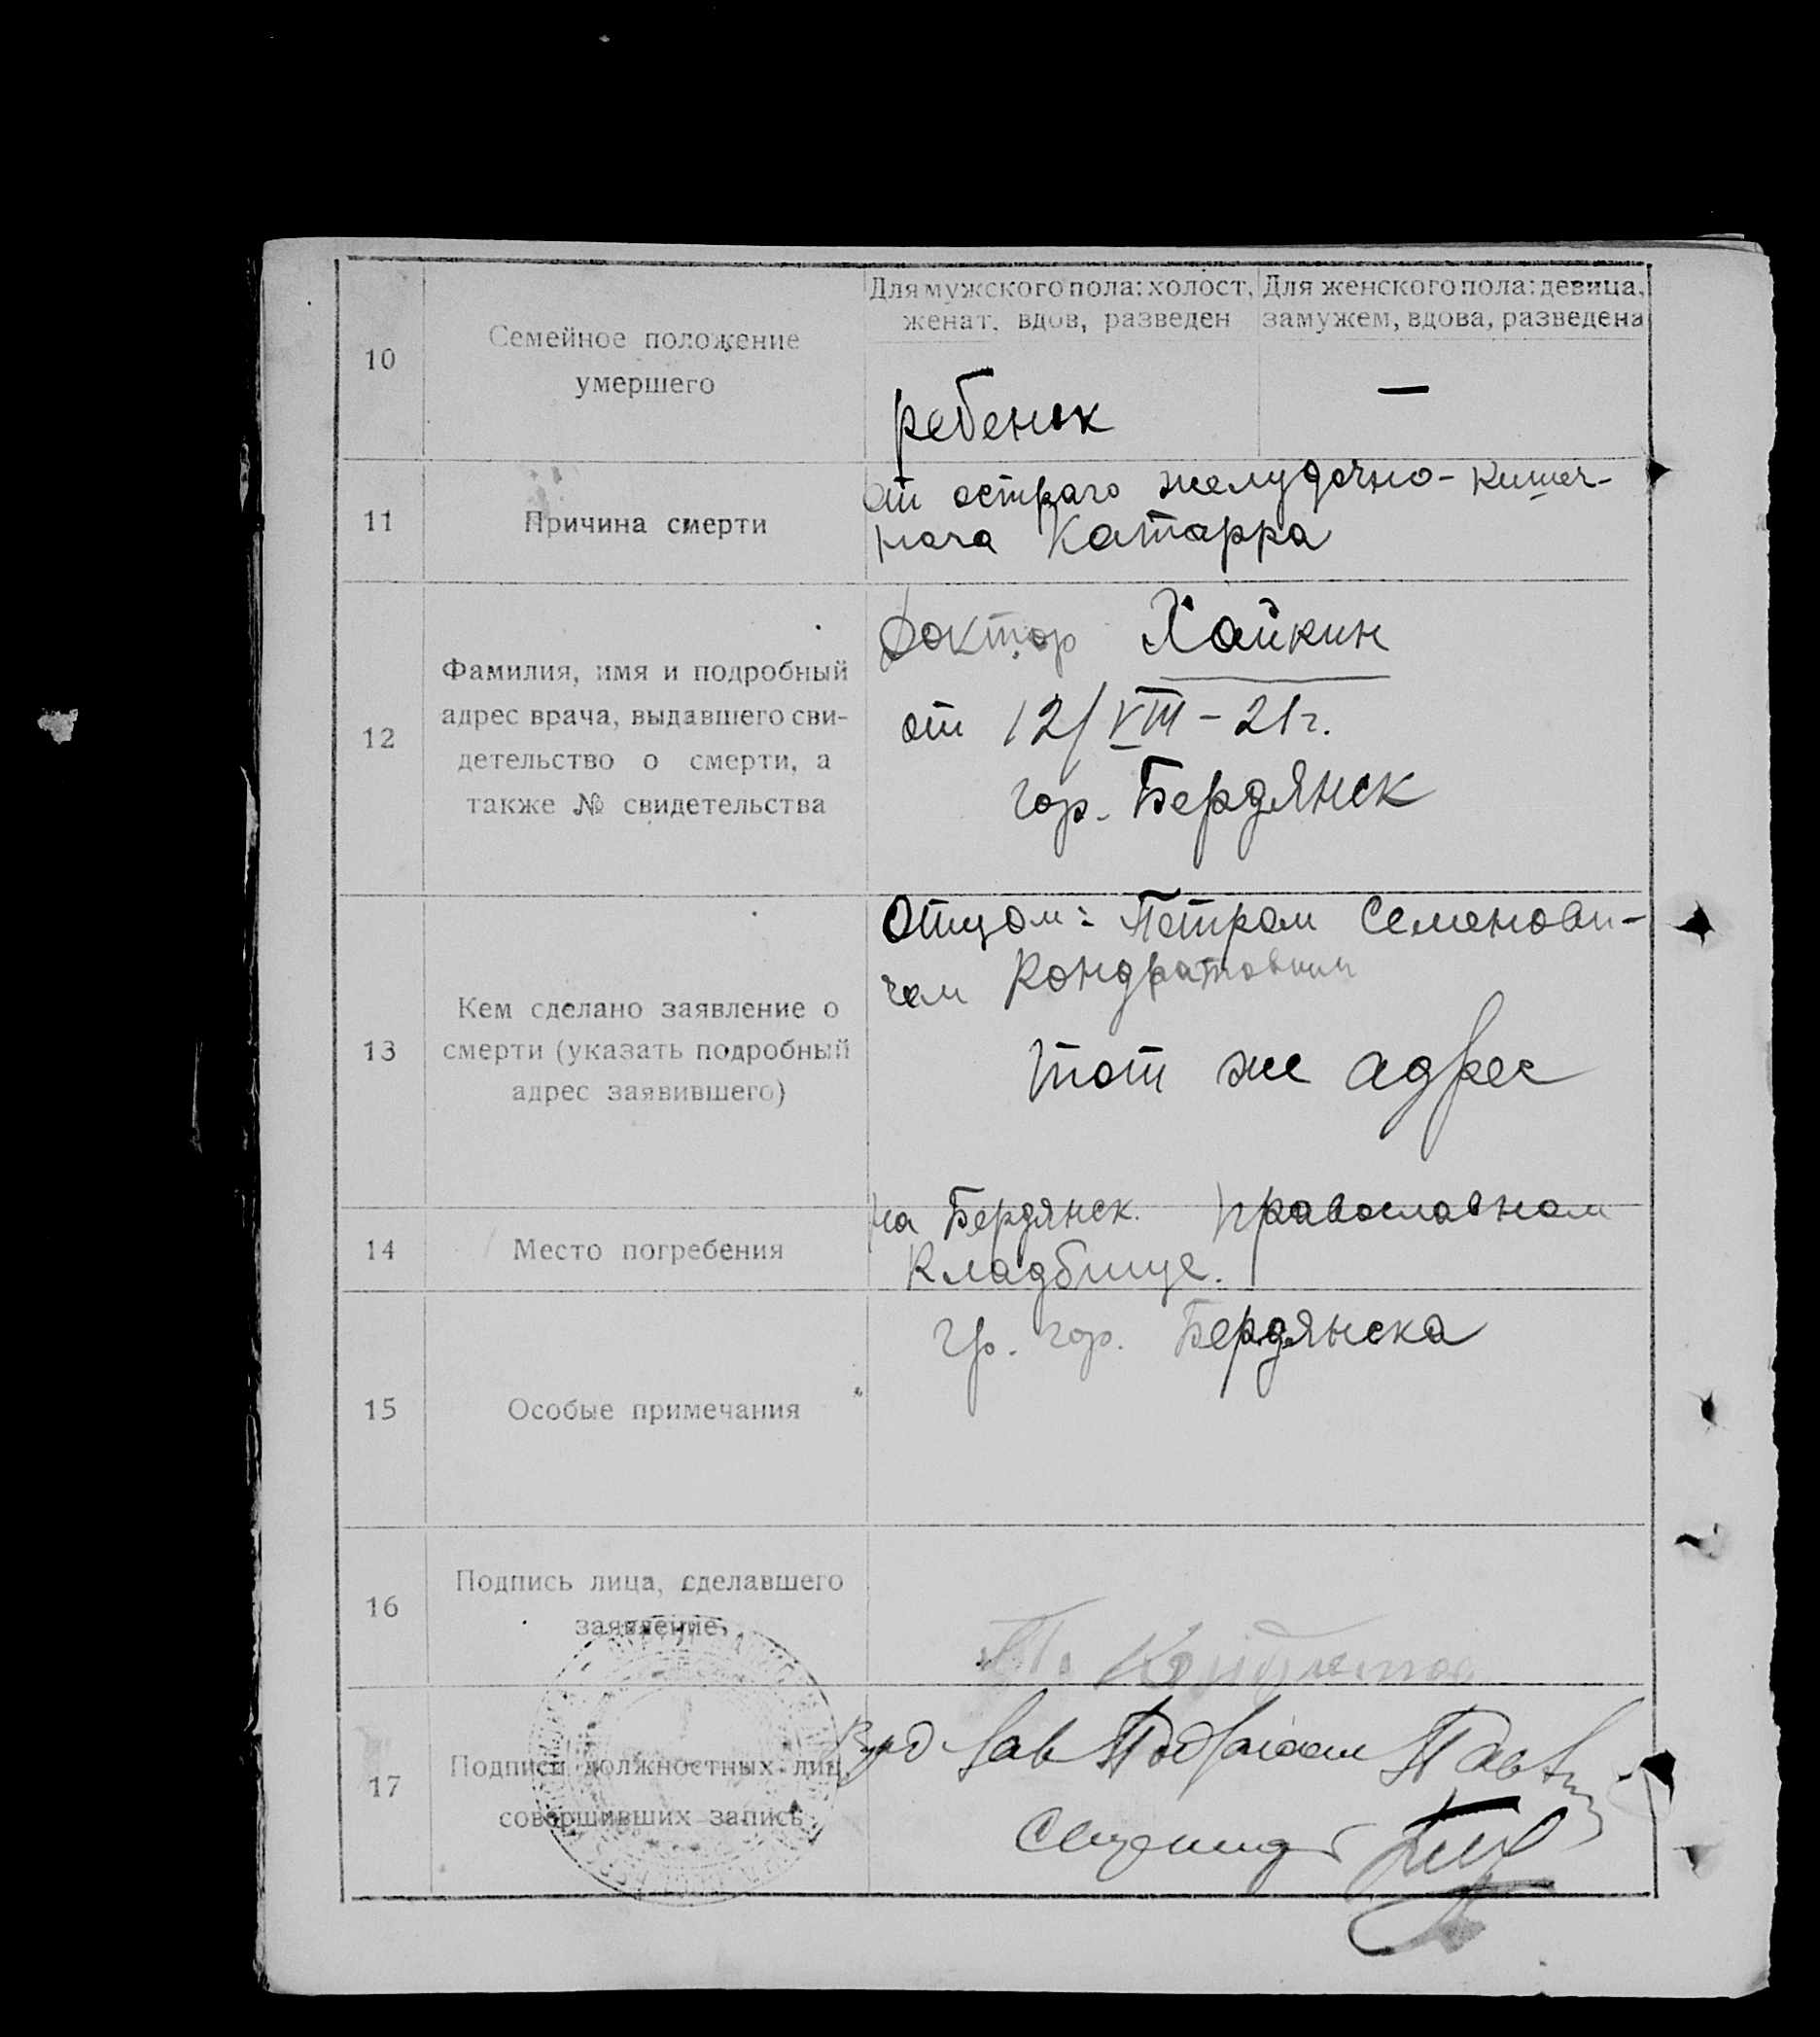 10
Семейное положение
умершего
Для мужского пола: холост,
женат, вдов, разведен
Для женского пола: девица,
замужем, вдова, разведена
ребенок
—
11
Причина смерти
от острого желудочно-кишеч-
ного Катарра
12
Фамилия, имя и подробный
адрес врача, выдавшего сви-
детельство о смерти, а
также № свидетельства
Доктор Хайкин
от 12/VIII – 21 г.
гор. Бердянск
13
Кем сделано заявление о
смерти (указать подробный
адрес заявившего)
Отцом: Петром Семенови-
чем Кондратовым
тот же адрес
14
Место погребения
на Бердянск. православном
Кладбище.
15
Особые примечания
гр. гор. Бердянска
16
Подпись лица, сделавшего
заявление
П. Кондратов
17
Подписи должностных лиц,
совершивших запись